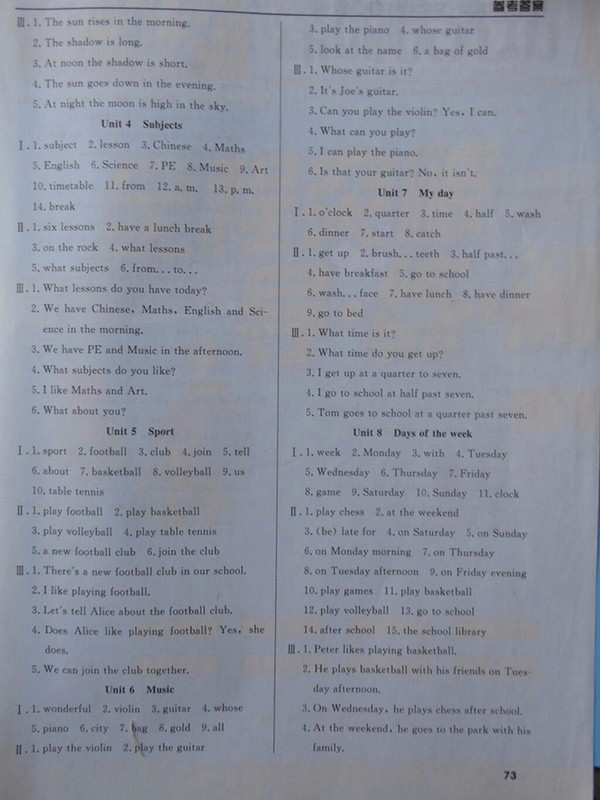 参考答案
Ⅲ. 1. The sun rises in the morning.
2. The shadow is long.
3. At noon the shadow is short.
4. The sun goes down in the evening.
5. At night the moon is high in the sky.
Unit 4 Subjects
Ⅰ. 1. subject 2. lesson 3. Chinese 4. Maths
5. English 6. Science 7. PE 8. Music 9. Art
10. timetable 11. from 12. a. m. 13. p. m.
14. break
Ⅱ. 1. six lessons 2. have a lunch break
3. on the rock 4. what lessons
5. what subjects 6. from...to...
Ⅲ. 1. What lessons do you have today?
2. We have Chinese, Maths, English and Sci-
ence in the morning.
3. We have PE and Music in the afternoon.
4. What subjects do you like?
5. I like Maths and Art.
6. What about you?
Unit 5 Sport
Ⅰ. 1. sport 2. football 3. club 4. join 5. tell
6. about 7. basketball 8. volleyball 9. us
10. table tennis
Ⅱ. 1. play football 2. play basketball
3. play volleyball 4. play table tennis
5. a new football club 6. join the club
Ⅲ. 1. There's a new football club in our school.
2. I like playing football.
3. Let's tell Alice about the football club.
4. Does Alice like playing football? Yes, she
does.
5. We can join the club together.
Unit 6 Music
Ⅰ. 1. wonderful 2. violin 3. guitar 4. whose
5. piano 6. city 7. bag 8. gold 9. all
Ⅱ. 1. play the violin 2. play the guitar
3. play the piano 4. whose guitar
5. look at the name 6. a bag of gold
Ⅲ. 1. Whose guitar is it?
2. It's Joe's guitar.
3. Can you play the violin? Yes, I can.
4. What can you play?
5. I can play the piano.
6. Is that your guitar? No, it isn't.
Unit 7 My day
Ⅰ. 1. o'clock 2. quarter 3. time 4. half 5. wash
6. dinner 7. start 8. catch
Ⅱ. 1. get up 2. brush...teeth 3. half past...
4. have breakfast 5. go to school
6. wash...face 7. have lunch 8. have dinner
9. go to bed
Ⅲ. 1. What time is it?
2. What time do you get up?
3. I get up at a quarter to seven.
4. I go to school at half past seven.
5. Tom goes to school at a quarter past seven.
Unit 8 Days of the week
Ⅰ. 1. week 2. Monday 3. with 4. Tuesday
5. Wednesday 6. Thursday 7. Friday
8. game 9. Saturday 10. Sunday 11. clock
Ⅱ. 1. play chess 2. at the weekend
3. (be) late for 4. on Saturday 5. on Sunday
6. on Monday morning 7. on Thursday
8. on Tuesday afternoon 9. on Friday evening
10. play games 11. play basketball
12. play volleyball 13. go to school
14. after school 15. the school library
Ⅲ. 1. Peter likes playing basketball.
2. He plays basketball with his friends on Tues-
day afternoon.
3. On Wednesday, he plays chess after school.
4. At the weekend, he goes to the park with his
family.
73